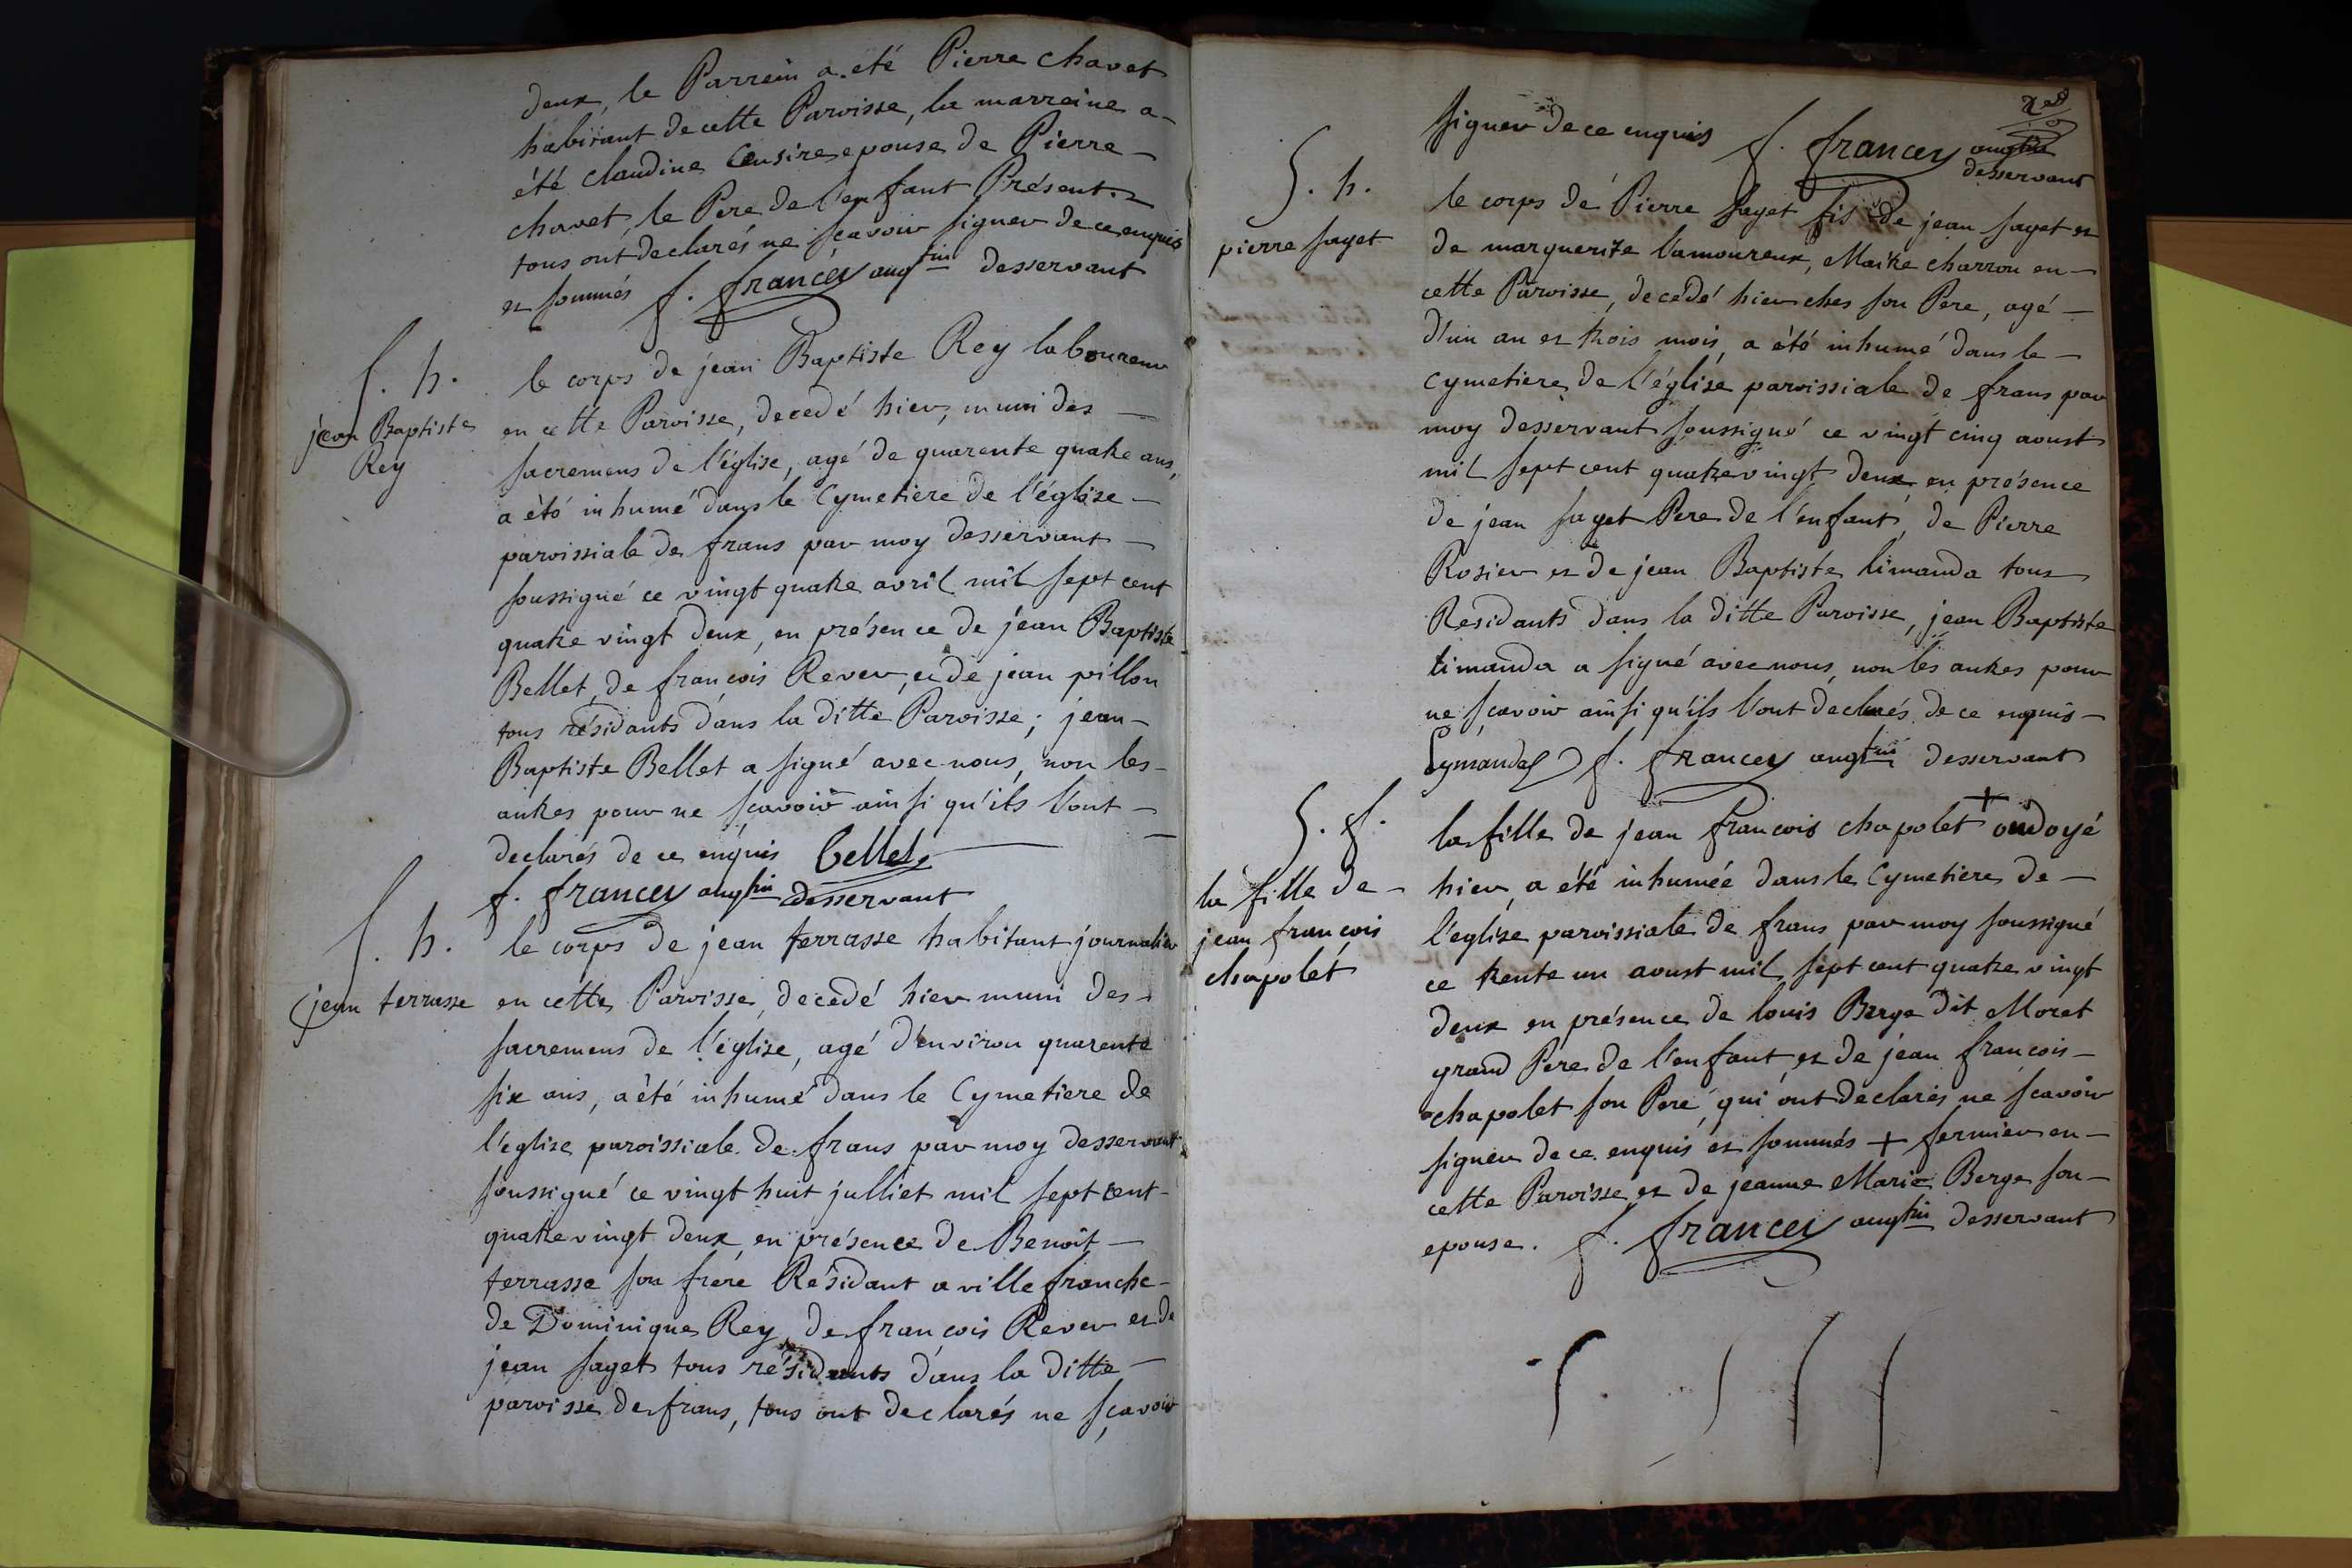 deux, le Parrein a été Pierre chavet
habitant de cette Paroisse, la marreine a
été claudine epouse de Pierre
chavet, le Pere de l'enfant Présent.
tous ont declarés ne sçavoir signer de ce enquis
et sommés f. francey augtin desservant
S. h.
jean Baptiste
Rey
le corps de jean Baptiste Rey laboureur
en cette Paroisse, decedé hier, muni des
sacremens de l'église, agé de quarente quatre ans,
a été inhumé dans le Cymetiere de l'église
paroissiale de frans par moy desservant
soussigné ce vingt quatre avril mil sept cent
quatre vingt deux, en présence de jean Baptiste
Bellet, de francois Rever, et de jean pillon
tous résidants dans la ditte Paroisse; jean
Baptiste Bellet a signé avec nous, non les
autres pour ne sçavoir ainsi qu'ils l'ont
declarés de ce enquis bellet
f. francey augtin desservant
S. h.
jean terrasse
le corps de jean terrasse habitant journalier
en cette Paroisse, decedé hier muni des
sacremens de l'église, agé d'environ quarente
six ans, a été inhumé dans le Cymetiere de
l'eglise paroissiale de frans par moy desservant
soussigné ce vingt huit julliet mil sept cent
quatre vingt deux, en présence de Benoit
terrasse son frere Résidant a ville franche
de Dominique Rey, de francois Rever et de
jean saget tous résidants dans la ditte
paroisse de frans, tous ont declarés ne sçavoir
signer de ce enquis f. francey augtin
desservant
S. h.
pierre saget
le corps de Pierre saget fils de jean saget et
de marguerite l'amoureux, Maitre charron en
cette Paroisse, decédé hier ches son Pere, agé
d'un an et trois mois, a été inhumé dans le
cymetiere de l'église paroissiale de frans par
moy desservant soussigné ce vingt cinq aoust
mil sept cent quatre vingt deux en présence
de jean saget Pere de l'enfant, de Pierre
Rosier et de jean Baptiste limanda tous
Residants dans la ditte Paroisse, jean Baptiste
limanda a signé avec nous, non les autres pour
ne sçavoir ainsi qu'ils l'ont declarés de ce enquis
Lymandas f. francey augtin desservant
S. f.
la fille de
jean francois
chapolet
la fille de jean francois chapolet + ondoyé
hier, a été inhumée dans le Cymetiere de
l'eglise paroissiale de frans par moy soussigné
ce trente un aoust mil sept cent quatre vingt
deux en présence de louis Berge dit Moret
grand Pere de l'enfant et de jean francois
chapolet son Pere qui ont declarés ne sçavoir
signer de ce enquis et sommés + fermier en
cette Paroisse et de jeanne Marie Berge son
epouse. f. francey augtin desservant